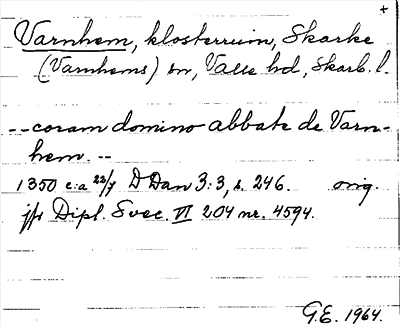 +
Varnhem, klosterruin, Skarke
(Varnhems) sn, Valle hd, Skarb. l.
-- coram domino abbate de Varn-
hem. --
1350 c:a 23/7 D Dan 3:3, s. 246. orig.
jfr Dipl. Svec. VI 204 nr. 4594.
G.E. 1964.